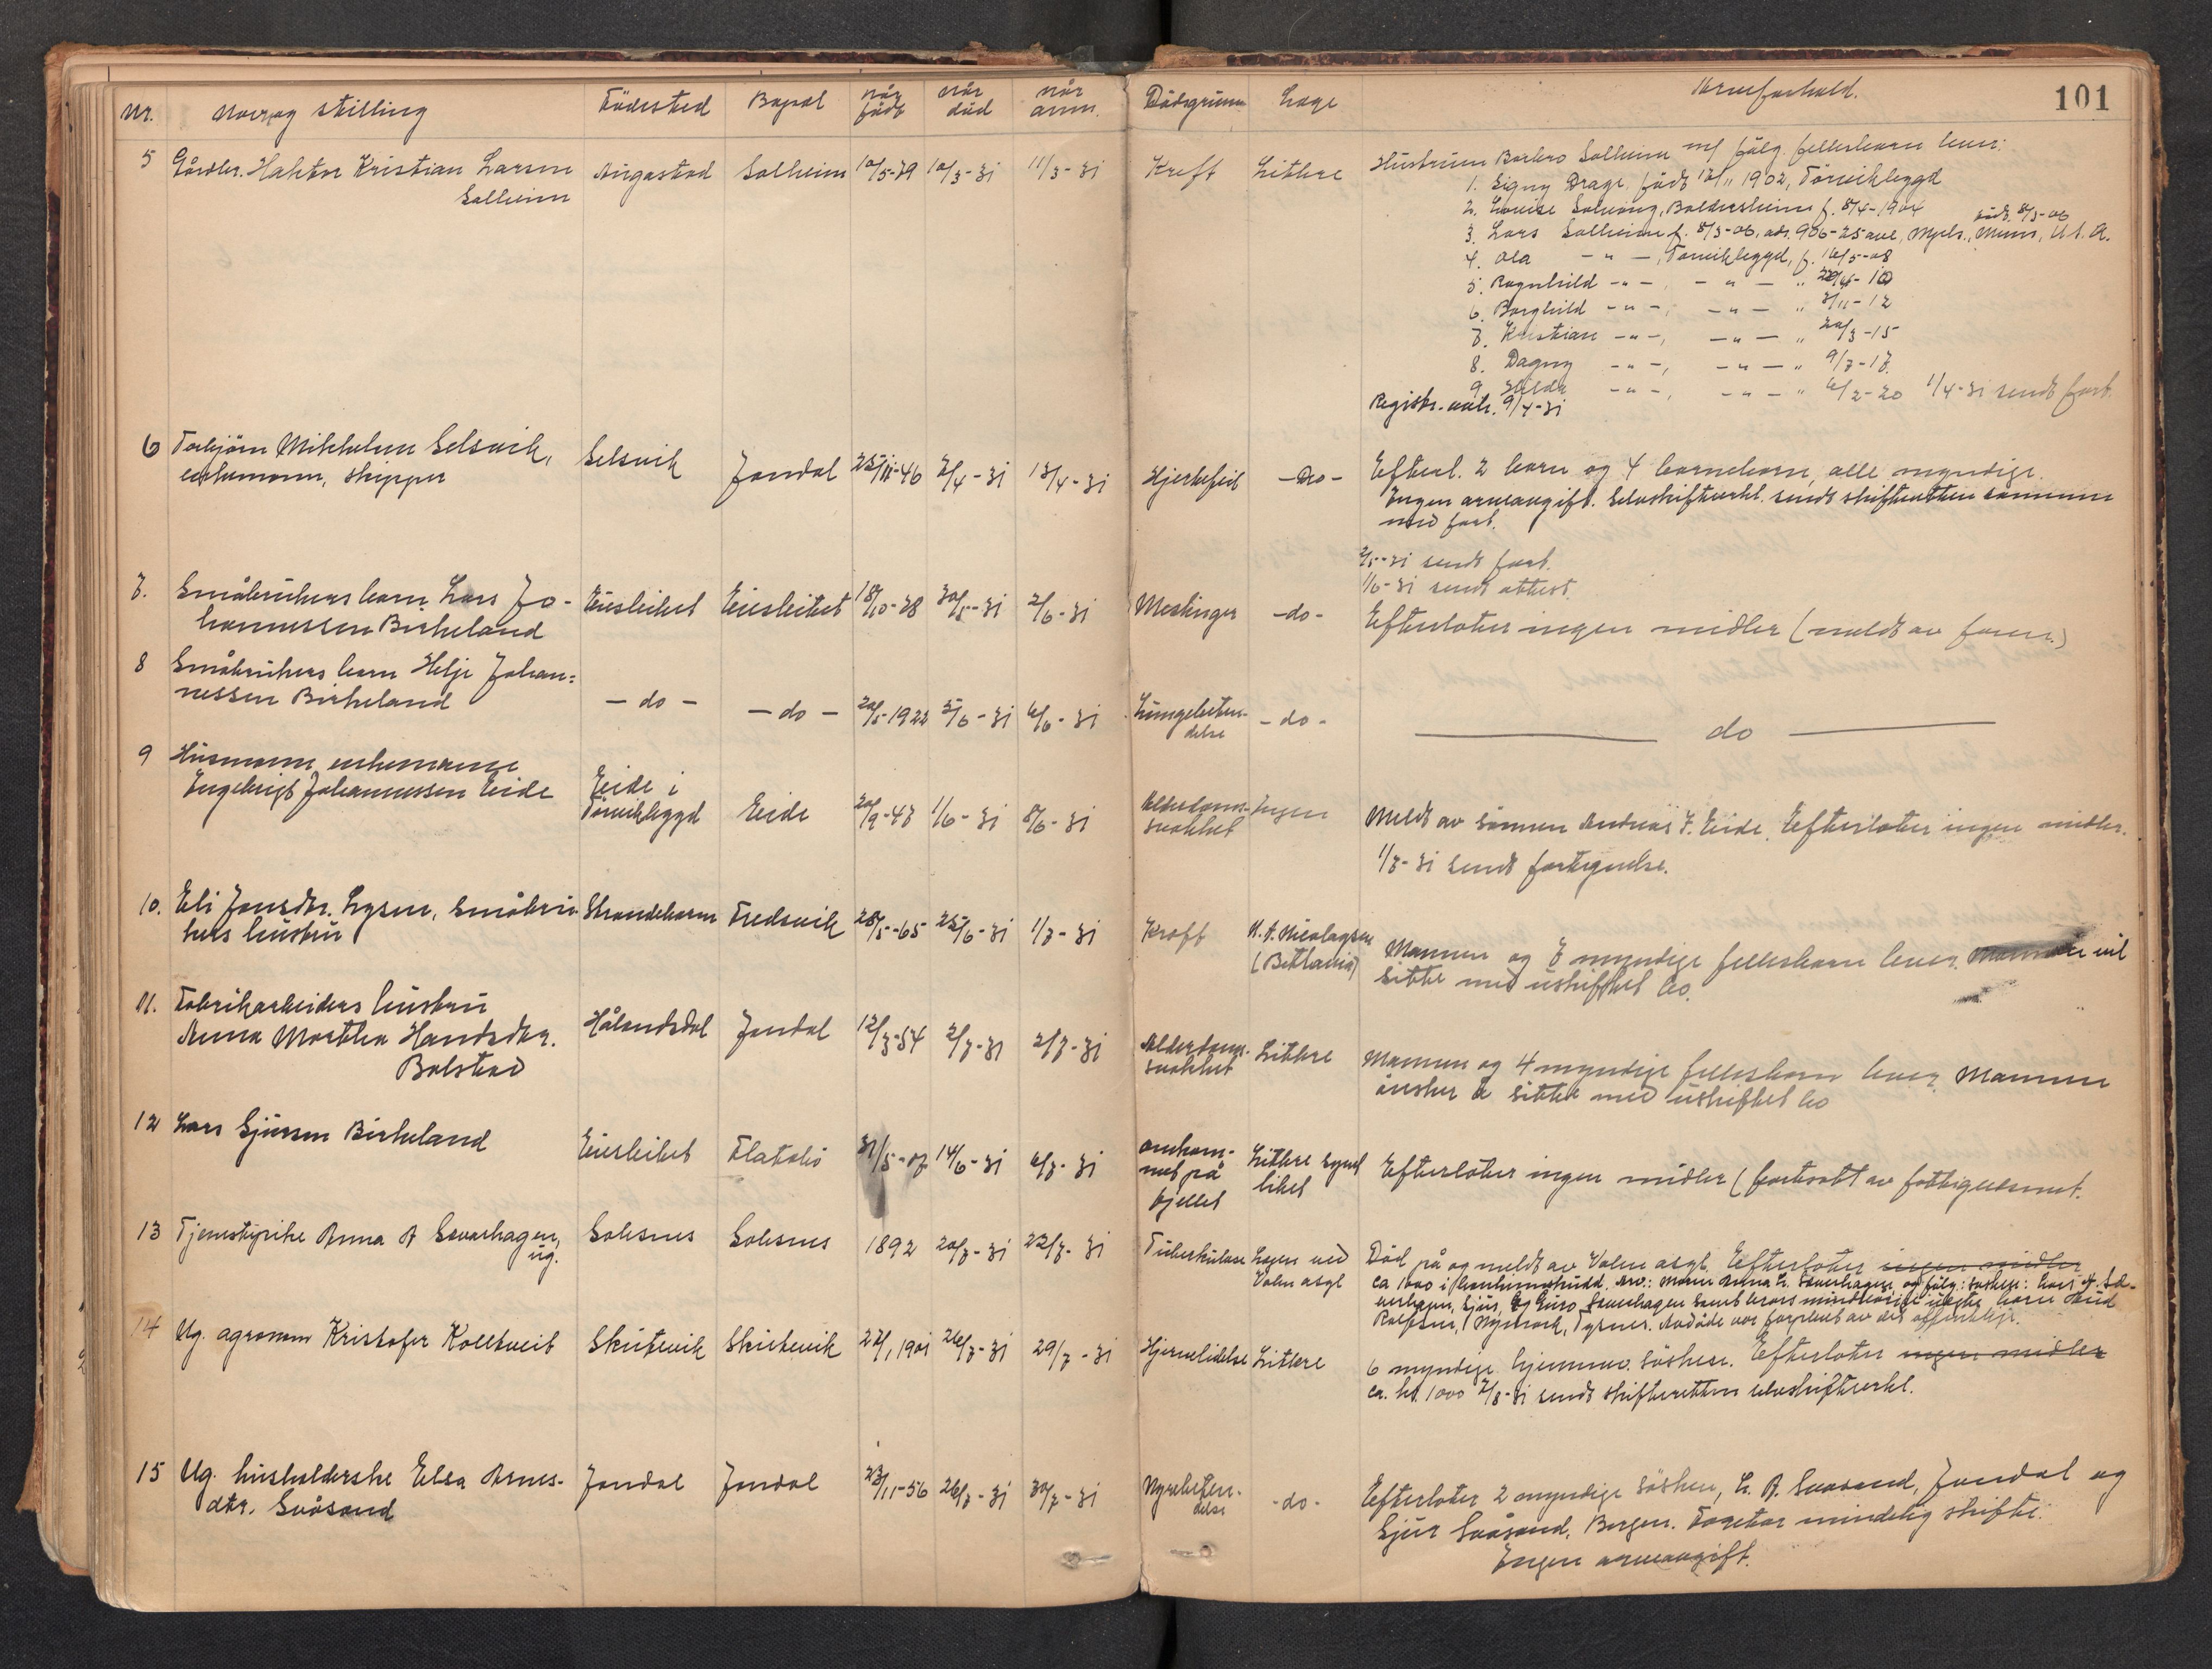 101
Nr. Navn og stilling Födested Bopæl når född når död når anm. Dödsgrunn Læge Arveforhold.
5 Gårdbr. Haktor Kristian Larsen Solheim Augastad Solheim 10/5-79 10/3-31 11/3-31 Kreft Littere
Hustruen Barbro Solheim m/ fölg. fellesbarn lever:
1. Signy Drage, född 12/11 1902, Törvikbygd
2. Lovise Solvang, Baldersheim f. 8/4-1904
3. Lars Solheim f. 8/3-06, adr. 906-25 ave, Mpls., Minn, U.S.A. född. 8/3-06
4. Ola -"-, Törvikbygd, f. 16/5-08
5. Ragnhild -"-, -"- " 22/4-10
6. Borghild -"-, -"- " 3/11-12
7. Kristian -"-, -"- " 20/3-15
8. Dagny -"-, -"- " 9/7-17.
9. Hilda -"-, -"- " 6/2-20 1/4-31 sendt fort.
Registr. avh. 9/4-31
6 Torbjörn Mikkelsen Selsvik, enkemann, skipper Selsvik Jondal 25/11-46 7/4-31 13/4-31 Hjertefeil -Do-
Efterl. 2 barn og 4 barnebarn, alle myndige.
Ingen arveavgift. Selvskifteerkl. sendt skifteretten sammen
med fort.
2/5-31 sendt fort.
1/6-31 sendt attest.
7. Småbrukers barn Lars Jo-
hannessen Birkeland Eiesleitet Eiesleitet 18/10-28 30/5-31 2/6-31 Meslinger -do-
Efterlater ingen midler (meldt av faren.)
8 Småbrukers barn Helje Johan=
nessen Birkeland -do- -do- 20/5-1922 5/6-31 6/6-31 Lungebeten-
delse -do- do
9 Husmann, enkemann
Engebrigt Johannessen Eide Eide i
Törvikbygd Eide 20/9-47 1/6-31 8/6-31 Alderdoms-
svakhet Ingen
Meldt av sönnen Andreas J. Eide. Efterlater ingen midler.
1/7-31 sendt fortegnelse.
10. Eli Jonsdtr. Lysen, småbru-
kers hustru Strandebarm Fredsvik 28/5-65 25/6-31 1/7-31 Kreft N. A. Nicolaysen
(Bethania)
Mannen og 7 myndige fellesbarn lever. Mannen vil
sitte med uskiftet bo.
11. Fabrikarbeiders hustru
Anna Marthea Hansdtr.
Bolstad Hålandsdal Jondal 12/3-54 2/7-31 2/7-31 Alderdoms-
svakhet Littere
Mannen og 4 myndige fellesbarn lever. Mannen
önsker å sitte med uskiftet bo
12 Lars Sjursen Birkeland Eiesleitet Flatabö 31/5-07 14/6-31 6/7-31 omkom-
met på
fjellet Littere synt
liket
Efterlater ingen midler (fortsatt av fattigvesenet.
13 Tjenestepike Anna A Sævarhagen,
ug. Solesnes Solesnes 1892 20/7-31 22/7-31 Tuberkulose Legen ved
Valen asyl
Död på og meldt av Valen asyl. Efterlater ingen midler
ca 1000 i bankinnskudd. Arv.: Moren Anna L. Sævarhagen, og fölg: söskene: Lars A. Sæ-
verhagen, Sjur, og Guro Sævarhagen samt brors mindreårige uekte barn Knud
Rolfsnes, Nymark, Tysnes. Avdöde var forpleiet av det offentlige.
14 Ug. agronom Kristofer Kolltveit Skutevik Skutevik 22/1 1901 26/7-31 29/7-31 Hjernelidelse Littere
6 myndige hjemmev. söskene. Efterlater ingen midler
ca. kr. 1000 7/8-31 sendt skifteretten selvskifteerkl.
15 Ug. husholderske Elsa Arnes-
dtr. Svåsand Jondal Jondal 23/11-56 26/7-31 30/7-31 Nyrebeten-
delse -do-
Efterlater 2 myndige söskene, L. A. Svaasand, Jondal og
Sjur Svåsand, Bergen. Foretar mindelig skifte.
Ingen arveavgift.